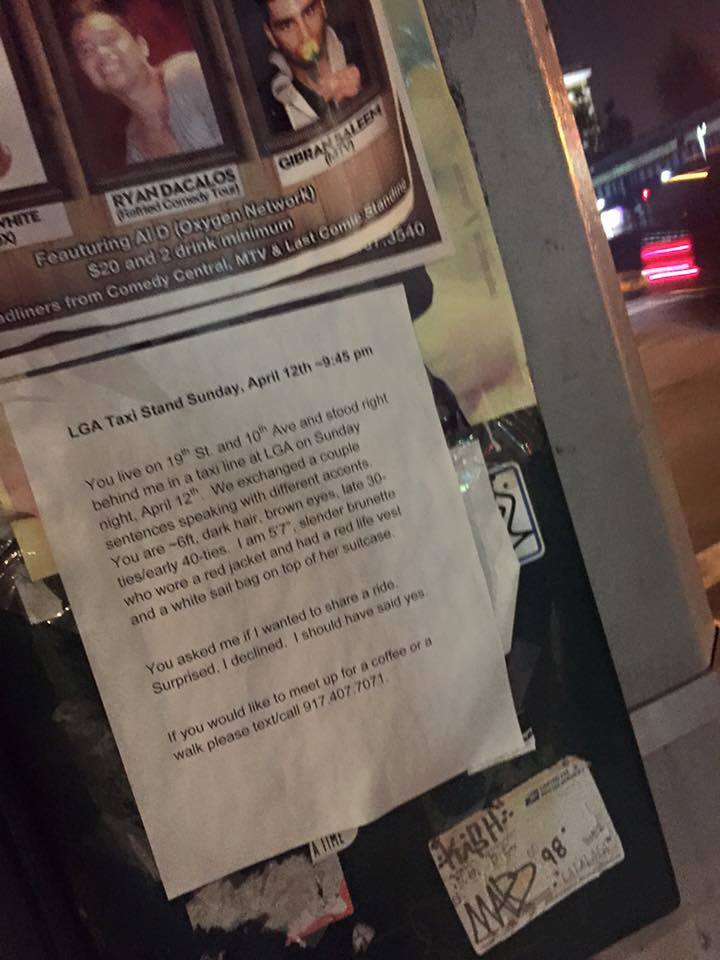 WHITE
RYAN DACALOS
(Refried Comedy Tour)
GIBRAN SALEEM
(MTV)
Feauturing Al D (Oxygen Network)
$20 and 2 drink minimum
Headliners from Comedy Central, MTV & Last Comic Standing
3540
LGA Taxi Stand Sunday, April 12th ~9:45 pm
You live on 19th St. and 10th Ave and stood right
behind me in a taxi line at LGA on Sunday
night, April 12th. We exchanged a couple
sentences speaking with different accents.
You are ~6ft, dark hair, brown eyes, late 30-
ties/early 40-ties. I am 5'7", slender brunette
who wore a red jacket and had a red life vest
and a white sail bag on top of her suitcase.
You asked me if I wanted to share a ride.
Surprised, I declined. I should have said yes.
If you would like to meet up for a coffee or a
walk please text/call 917.407.7071.
A TIME
98